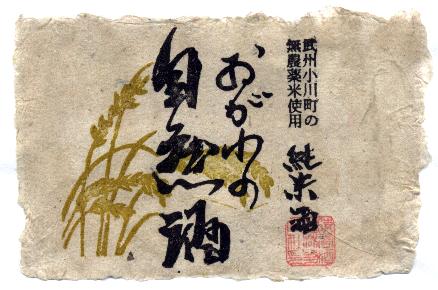 武州小川町の
無農薬米使用
純米酒
おがわの
自然酒